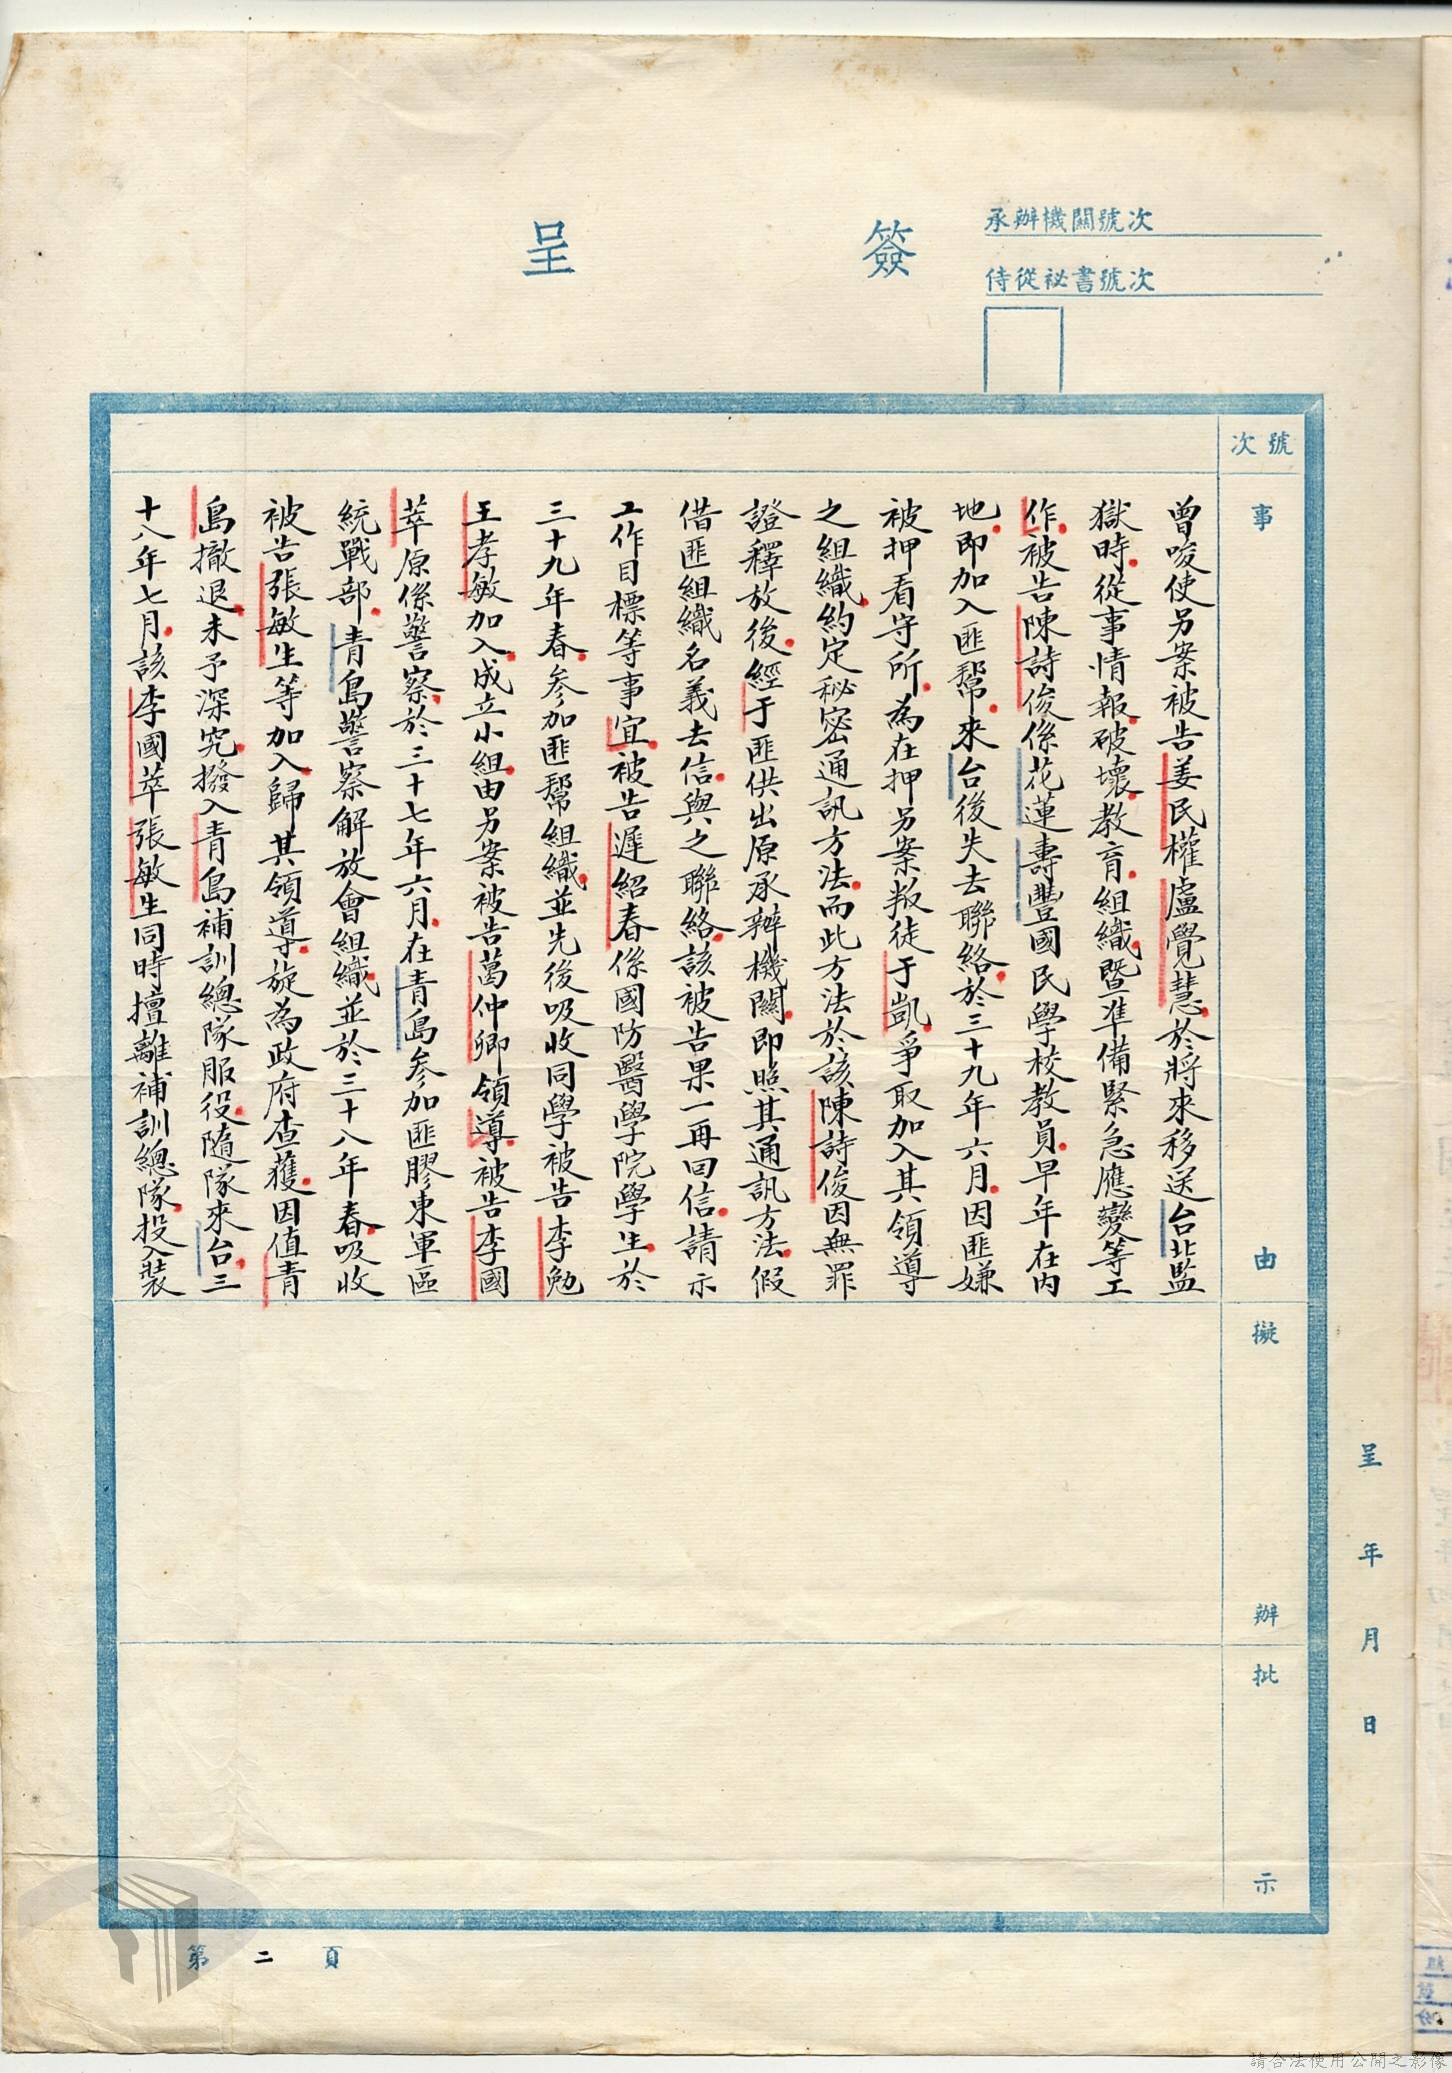 承辦機關號次
侍從祕書號次
簽呈
號次
事由
擬辦
批示
呈 年 月 日
曾唆使另案被告姜民權盧覺慧於將來移送台北監
獄時從事情報破壞教育組織暨準備緊急應變等工
作被告陳詩俊係花蓮壽豐國民學校教員早年在內
地即加入匪幫來台後失去聯絡於三十九年六月因匪嫌
被押看守所為在押另案叛徒于凱爭取加入其領導
之組織約定秘密通訊方法而此方法於該陳詩俊因無罪
證釋放後經于匪供出原承辦機關即照其通訊方法假
借匪組織名義去信與之聯絡該被告果一再回信請示
工作目標等事宜被告遲紹春係國防醫學院學生於
三十九年春參加匪幫組織並先後吸收同學被告李勉
王孝敏加入成立小組由另案被告萬仲卿領導被告李國
萃原係警察於三十七年六月在青島參加匪膠東軍區
統戰部青島警察解放會組織並於三十八年春吸收
被告張敏生等加入歸其領導旋為政府查獲因值青
島撤退未予深究撥入青島補訓總隊服役隨隊來台三
十八年七月該李國萃張敏生同時擅離補訓總隊投入裝
第二頁
請合法使用公開之影像